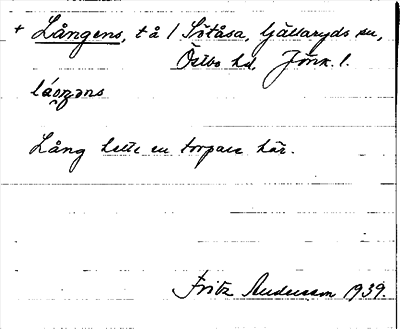 + Långens, t å / Sötåsa, Ljällaryds sn,
Östbo hd. Jönk. l.
Lång hette en torpare här.
Fritz Andersson 1939.